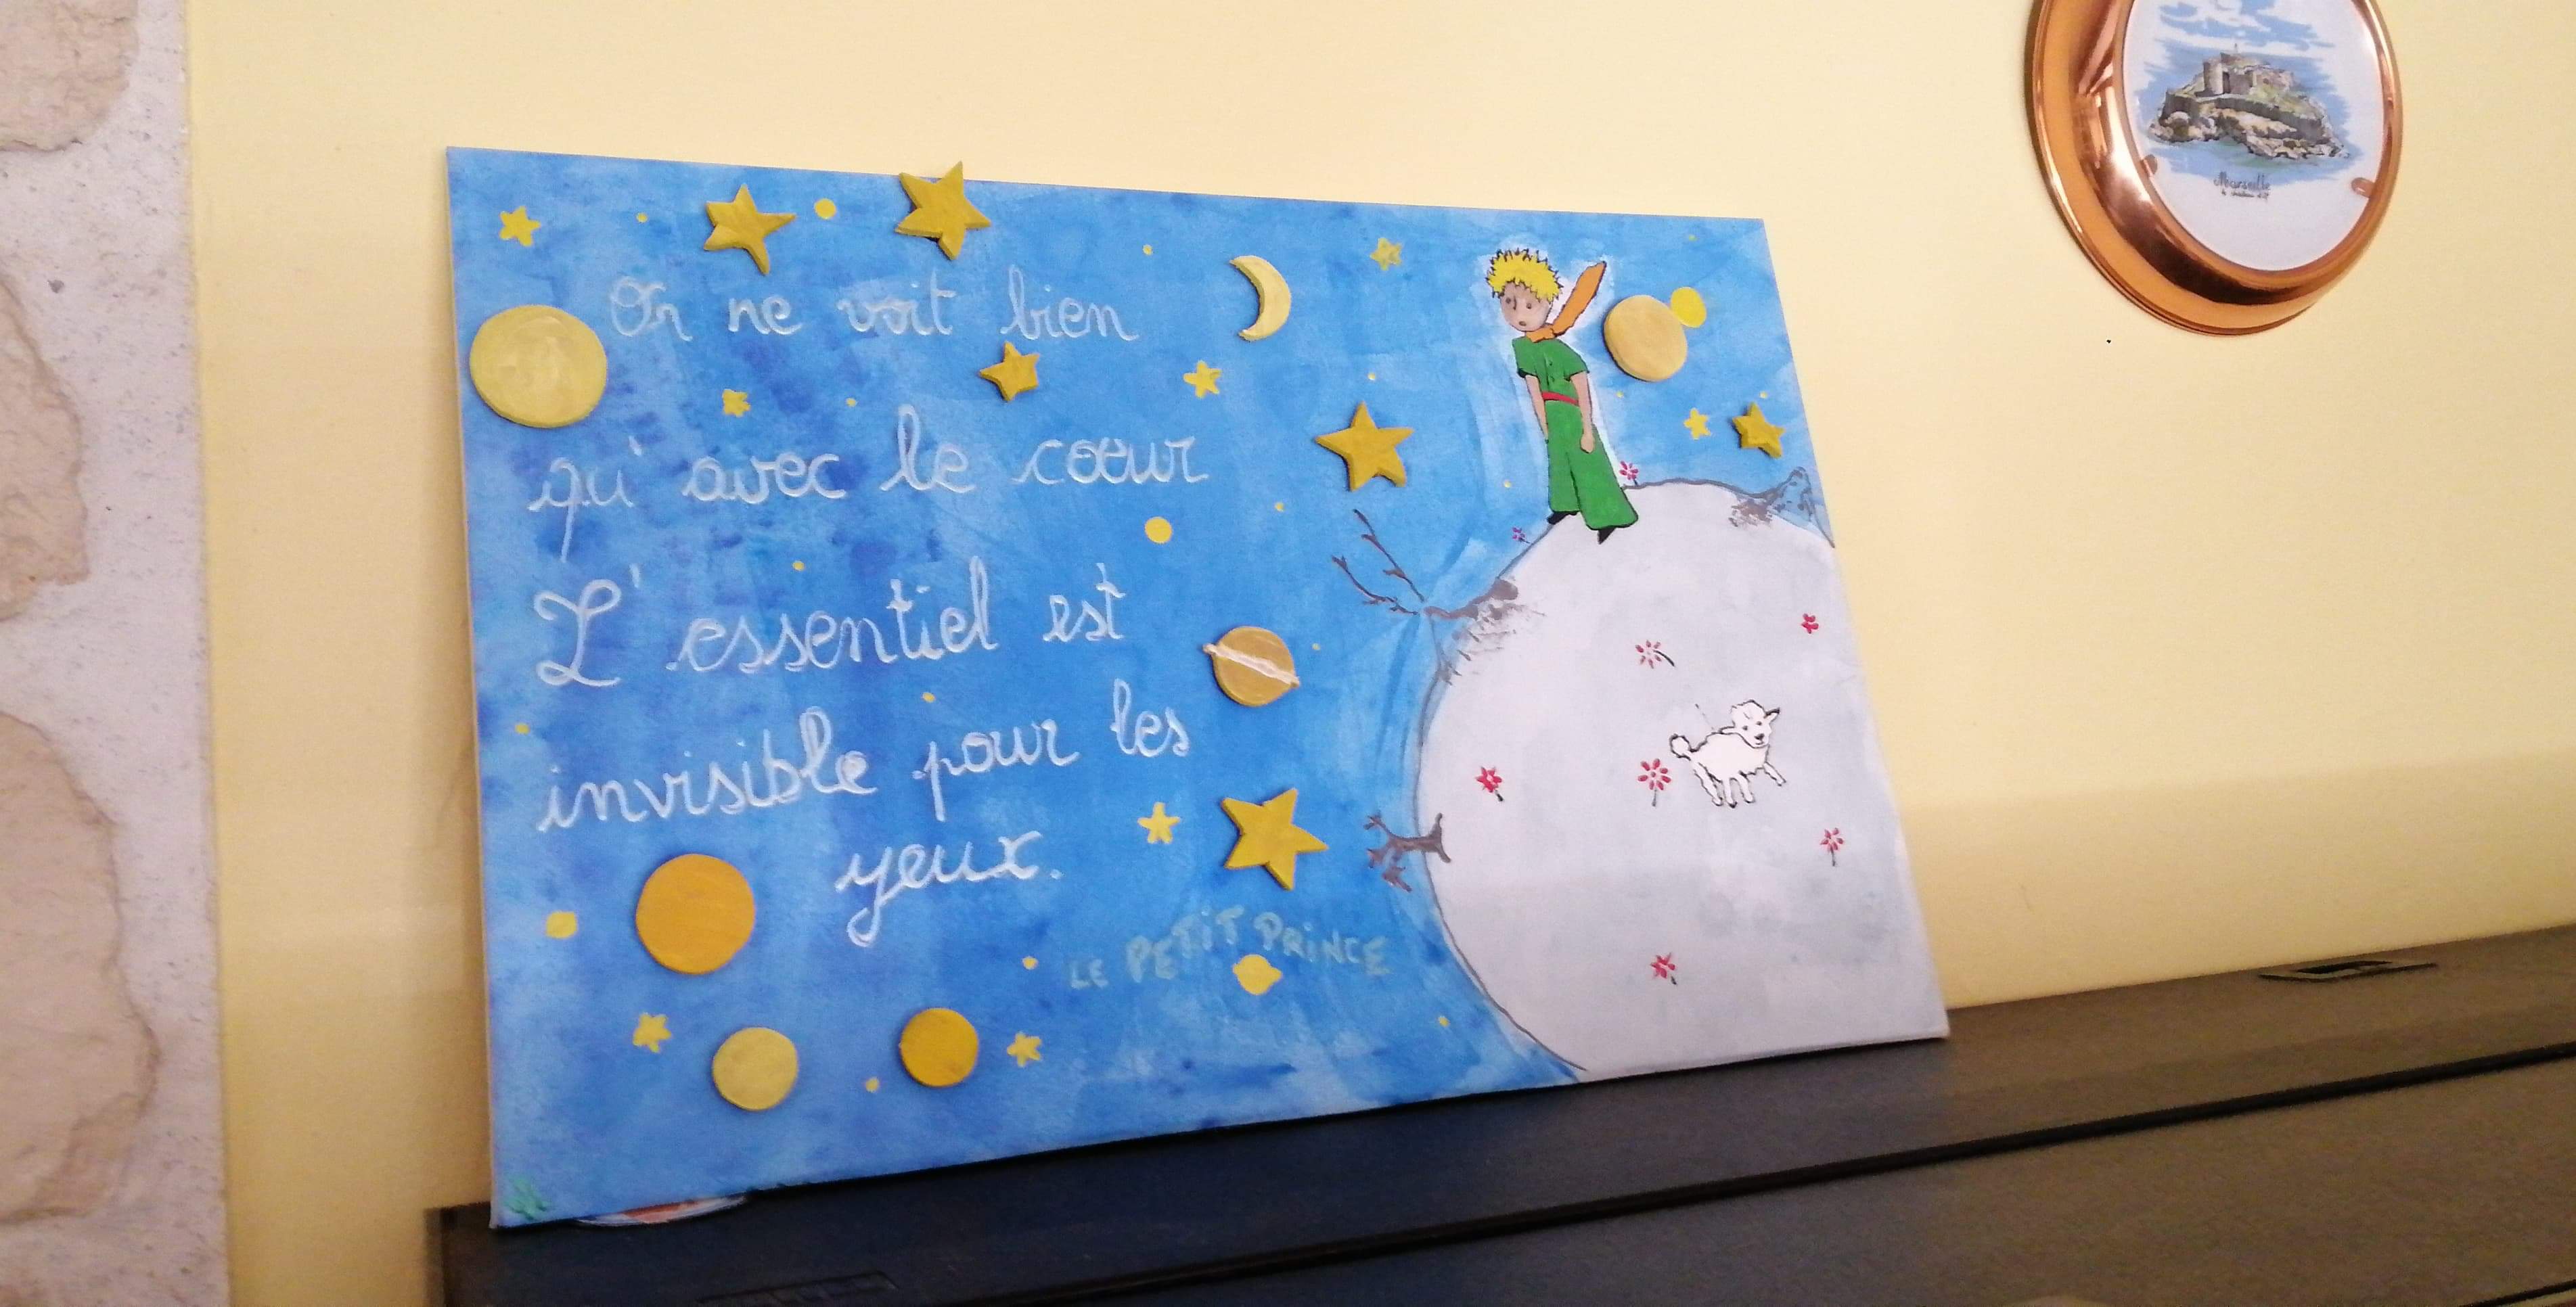 On ne voit bien
qu'avec le coeur
L'essentiel est
invisible pour les
yeux.
LE PETIT PRINCE
Marseille
le château d'If